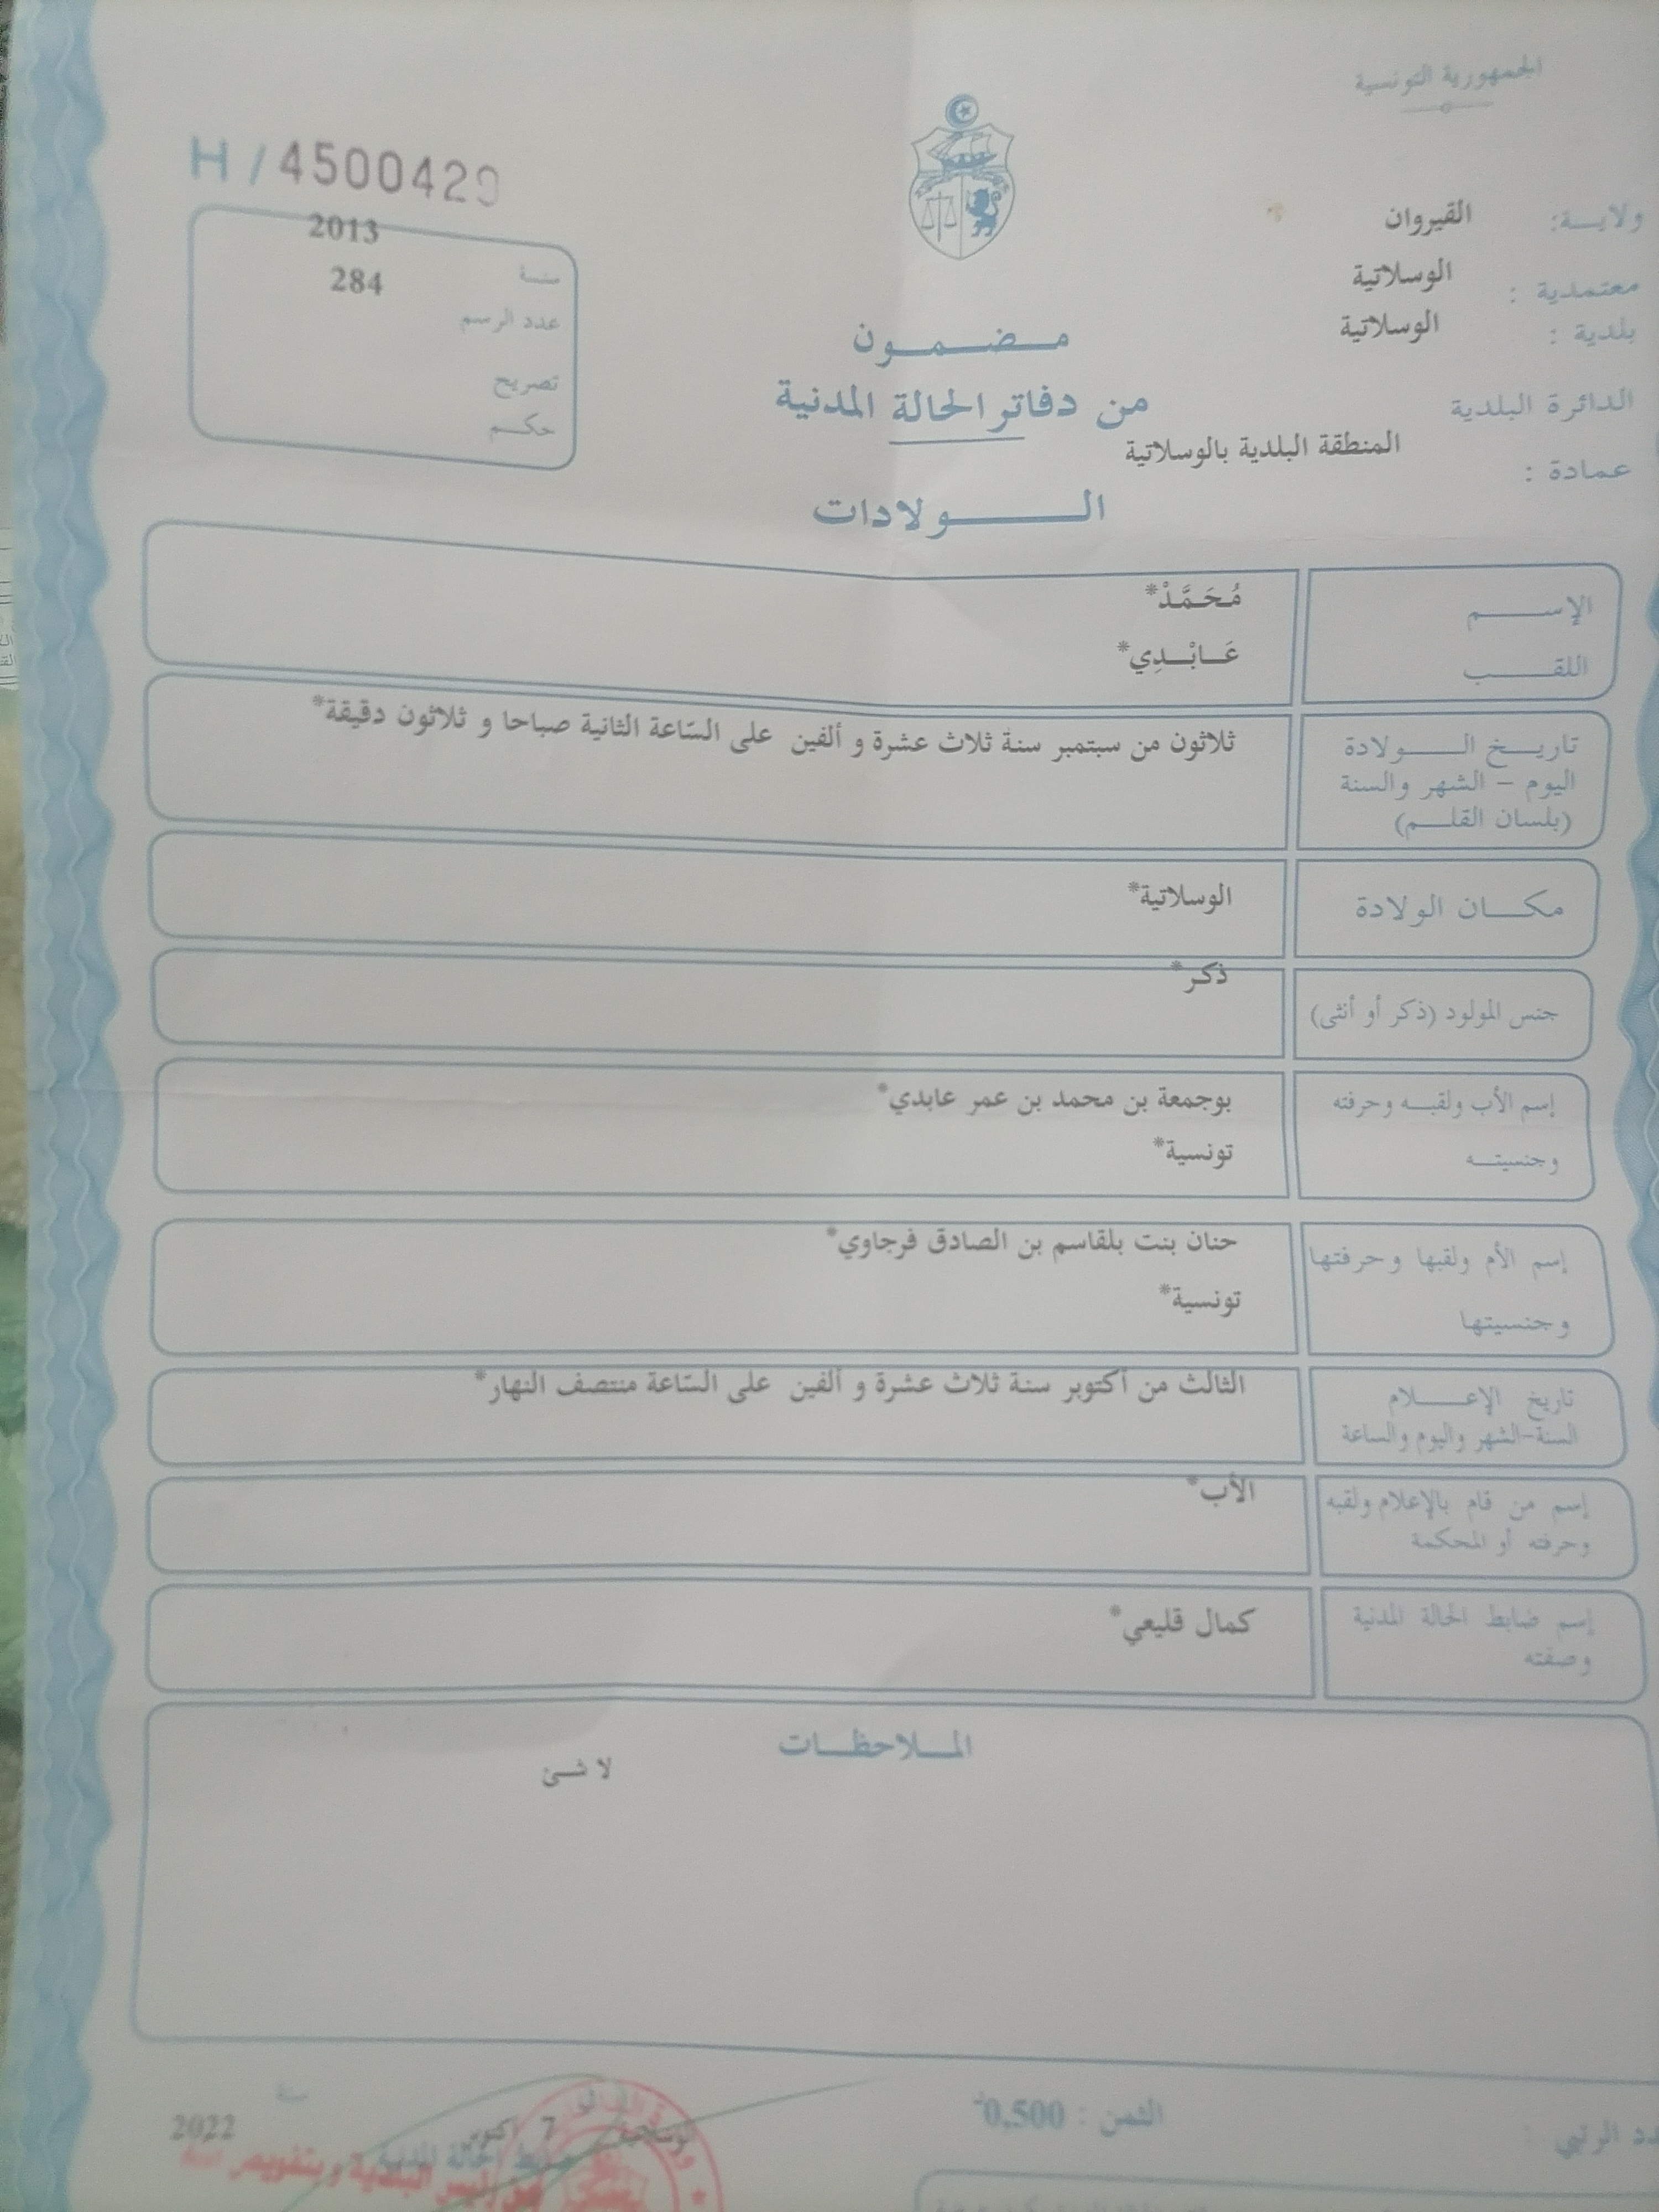 الجمهورية التونسية
ولايـــة: القيروان
معتمدية : الوسلاتية
بلدية : الوسلاتية
الدائرة البلدية
عمادة : المنطقة البلدية بالوسلاتية
H / 4500429
سنة 2013
عدد الرسم 284
تصريح
حكـــم
مـــضـــمـــون
من دفاتر الحالة المدنية
الـــــولادات
الإســــم مُحَمَّدْ*
اللقـــب عَـــابْـــدِي*
تاريـــخ الـــــولادة ثلاثون من سبتمبر سنة ثلاث عشرة و ألفين على السّاعة الثانية صباحا و ثلاثون دقيقة*
اليوم – الشهر والسنة
(بلسان القلـــم)
مكـــان الولادة الوسلاتية*
جنس المولود (ذكر أو أنثى) ذكر*
إسم الأب ولقبـــه وحرفته بوجمعة بن محمد بن عمر عابدي*
وجنسيتـــه تونسية*
إسم الأم ولقبها وحرفتها حنان بنت بلقاسم بن الصادق فرجاوي*
وجنسيتها تونسية*
تاريخ الإعـــــلام الثالث من أكتوبر سنة ثلاث عشرة و ألفين على السّاعة منتصف النهار*
السنة-الشهر واليوم والساعة
إسم من قام بالإعلام ولقبه الأب*
وحرفته أو المحكمة
إسم ضابط الحالة المدنية كمال قليعي*
وصفته
المـــلاحظـــات
لا شـــئ
الثمن : 0,500
الوسلاتية 7 أكتوبر سنة 2022
ضابط الحالة المدنية
عن رئيس البلدية وبتفويض منه